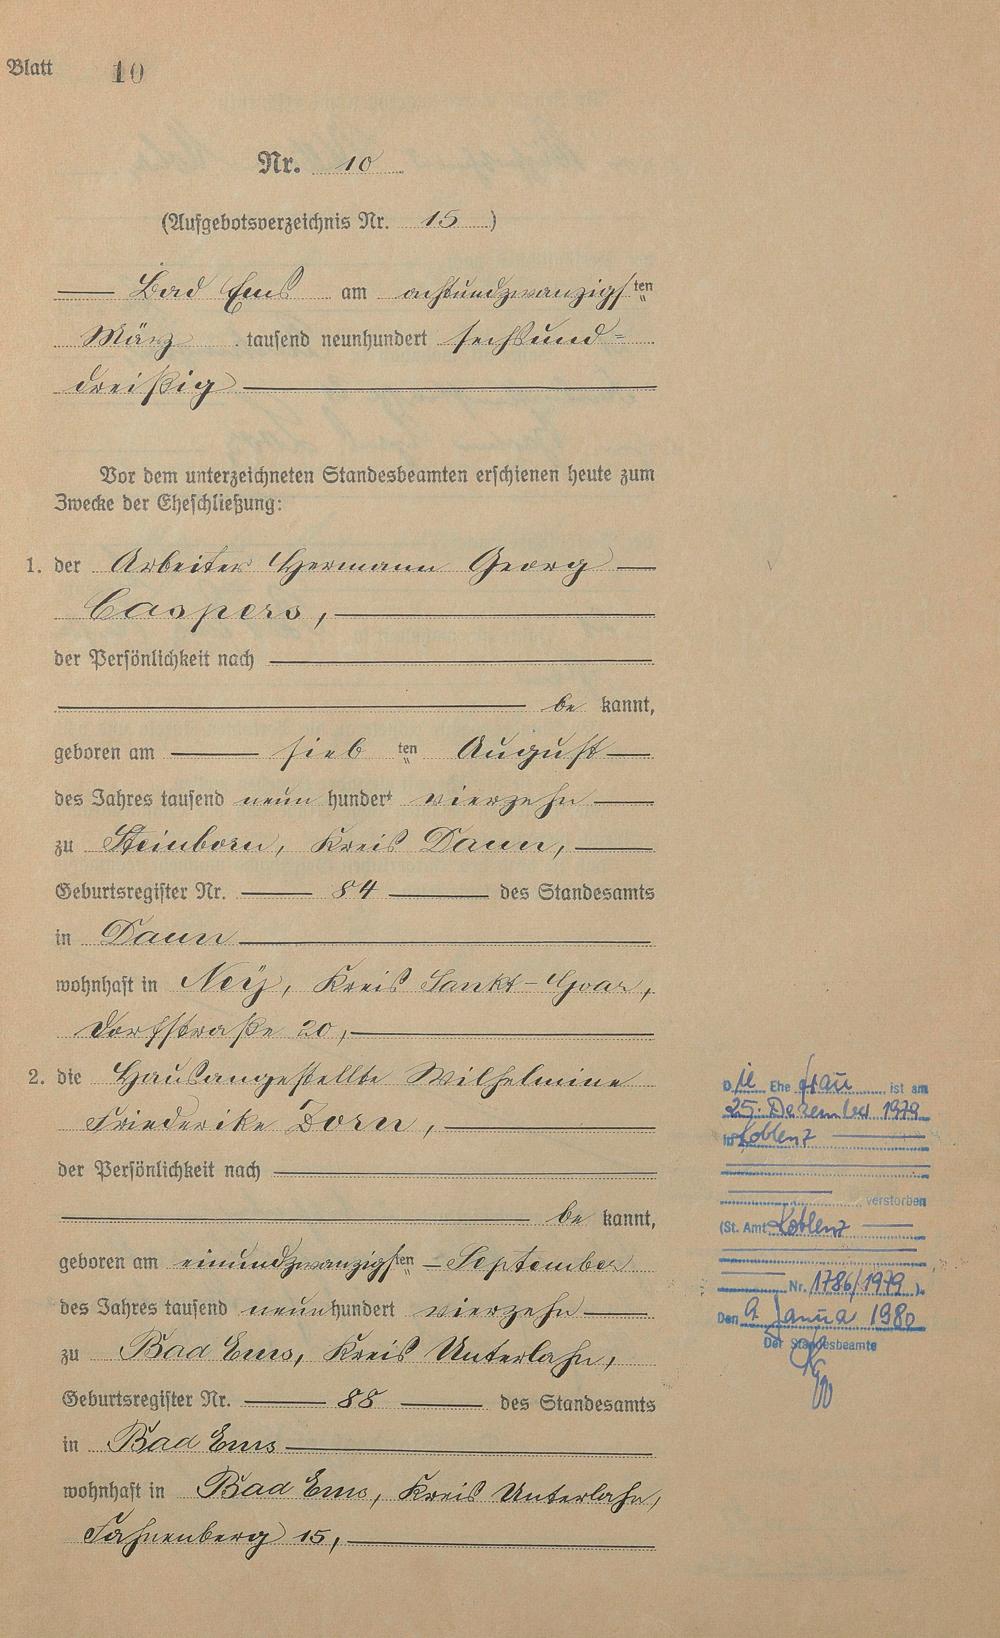 Blatt 10
Nr. 10
(Aufgebotsverzeichnis Nr. 15)
Bad Ems am achtundzwanzigsten
März tausend neunhundert sechsund=
dreißig
Vor dem unterzeichneten Standesbeamten erschienen heute zum
Zwecke der Eheschließung:
1. der Arbeiter Hermann Georg
Caspers,
der Persönlichkeit nach
be kannt,
geboren am sieb ten August
des Jahres tausend neun hundert vierzehn
zu Steinborn, Kreis Daun,
Geburtsregister Nr. 84 des Standesamts
in Daun
wohnhaft in Ney, Kreis Sankt-Goar,
Dorfstraße 20,
2. die Hausangestellte Wilhelmine
Friederike Dorn,
der Persönlichkeit nach
be kannt,
geboren am einundzwanzigsten September
des Jahres tausend neunhundert vierzehn
zu Bad Ems, Kreis Unterlahn,
Geburtsregister Nr. 88 des Standesamts
in Bad Ems
wohnhaft in Bad Ems, Kreis Unterlahn,
Fahnenberg 15,
Die Ehefrau ist am
25. Dezember 1979
in Koblenz
verstorben
(St. Amt Koblenz
Nr. 1786/1979).
Den 9. Janua 1980
Der Standesbeamte